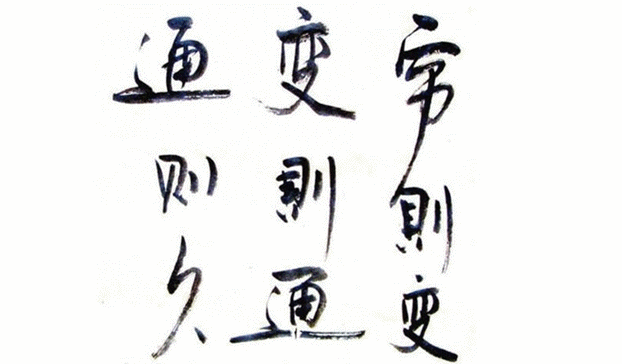 穷則变
变則通
通则久